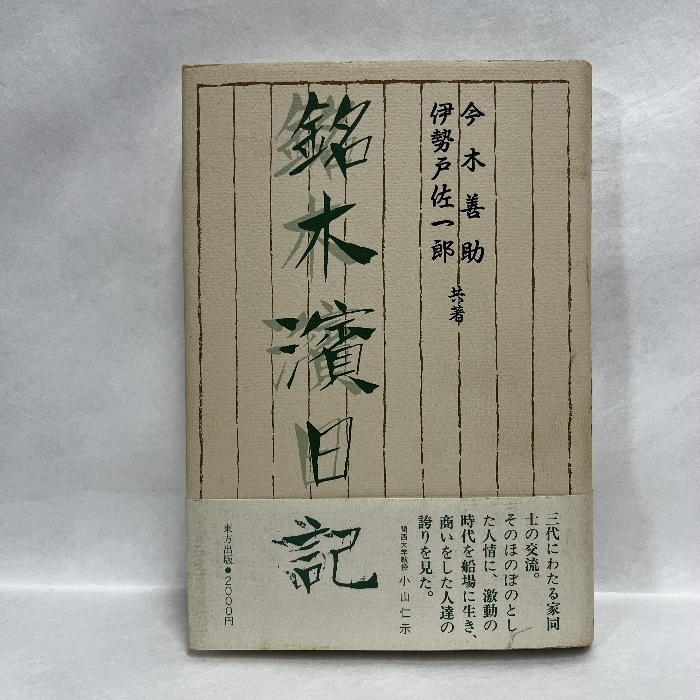 今木善助
伊勢戸佐一郎
共著
銘木濱日記
三代にわたる家同
士の交流。
そのほのぼのとし
た人情に、激動の
時代を船場に生き、
商いをした人達の
誇りを見た。
関西大学教授 小山仁示
東方出版●2000円